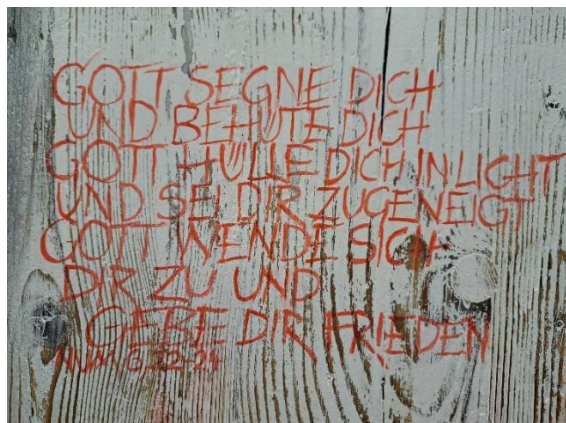 GOTT SEGNE DICH
UND BEHÜTE DICH
GOTT HÜLLE DICH IN LICHT
UND SEI DIR ZUGENEIGT
GOTT WENDE SICH
DIR ZU UND
GEBE DIR FRIEDEN
NUM 6,22-27